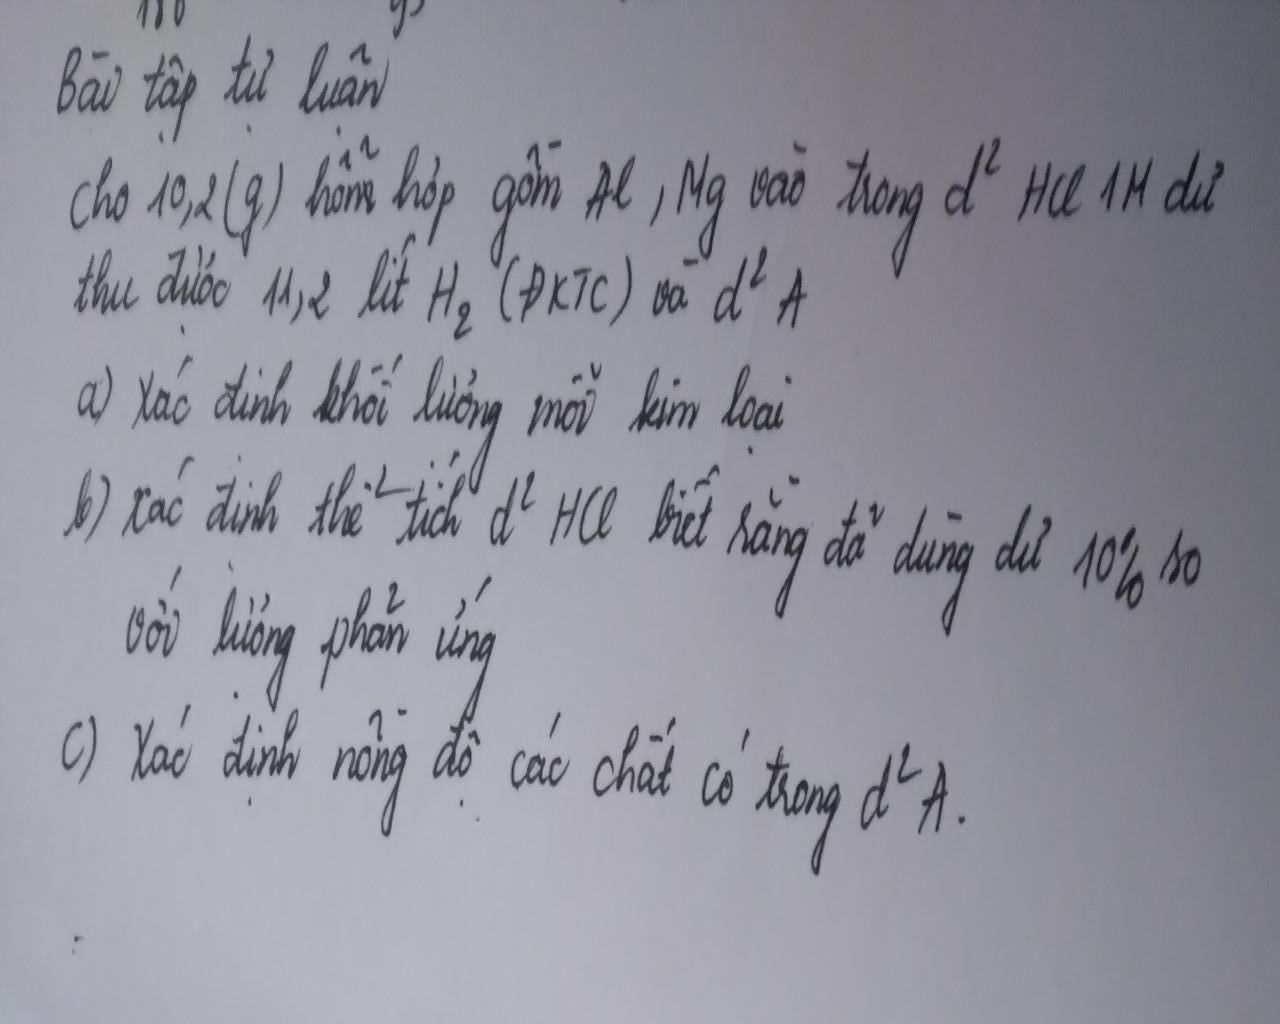 Bài tập tự luận
Cho 10,2(g) hỗn hợp gồm Al, Mg vào trong d² HCl 1M dư
thu được 11,2 lít H₂ (ĐKTC) và d² A
a) Xác định khối lượng mỗi kim loại
b) Xác định thể tích d² HCl biết rằng đã dùng dư 10% so
với lượng phản ứng
c) Xác định nồng độ các chất có trong d² A.